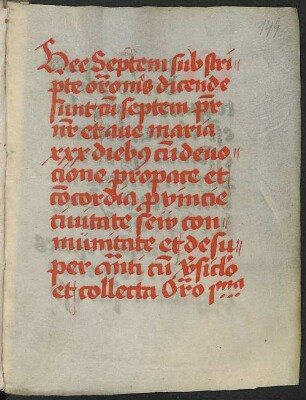 144
Hec Septem sub stri
pte or̄onīs dicende
sunt cū septem pr̄
nr̄ et aue maria
xxx diebꝰ cū deuo〃
cione p̱ropace et
cōcordia ꝓvincie
ciuitate seiv con〃
muūnitate et desu〃
per cā̄nti cū v̓siclo
et collecta Or̄o jᵐᵃ